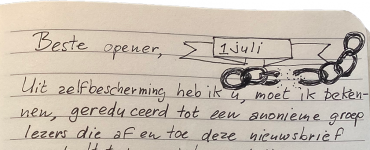 Beste opener,
1 juli
Uit zelfbescherming heb ik u, moet ik beken-
nen, gereduceerd tot een anonieme groep
lezers die af en toe deze nieuwsbrief